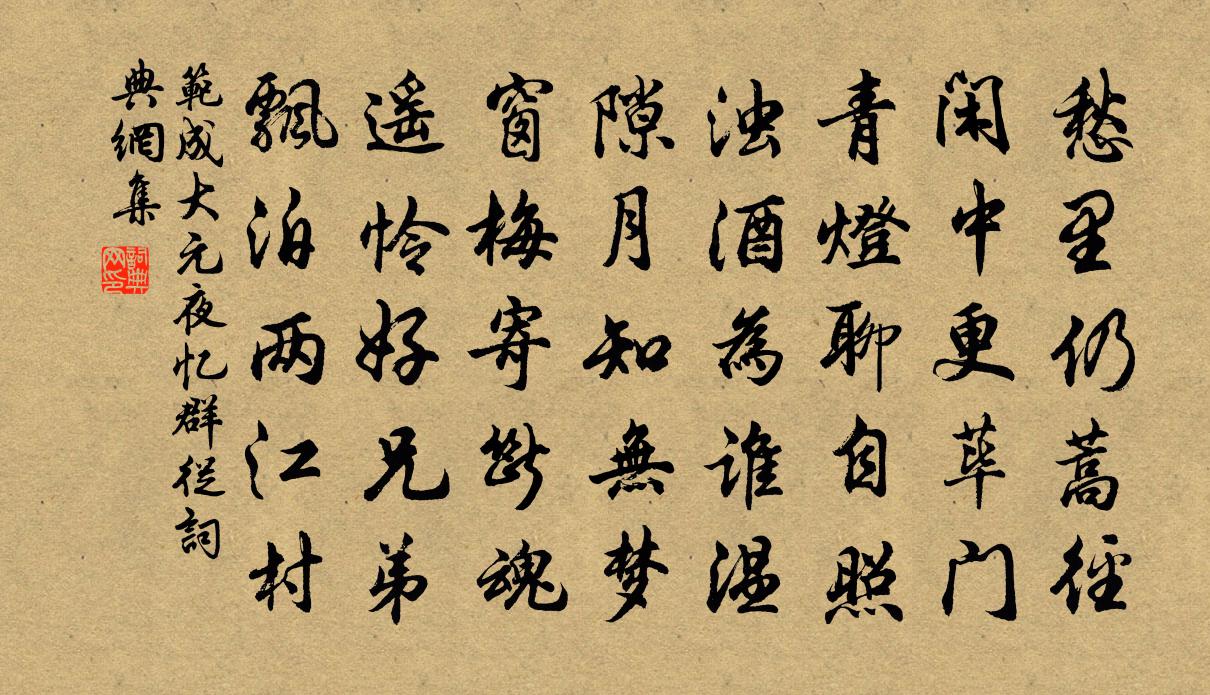 愁里仍蒿徑
闲中更荜门
青燈聊自照
浊酒為谁温
隙月知無梦
窗梅寄断魂
遥怜好兄弟
飄泊两江村
範成大元夜忆群從詞
典網集
詞典
网印